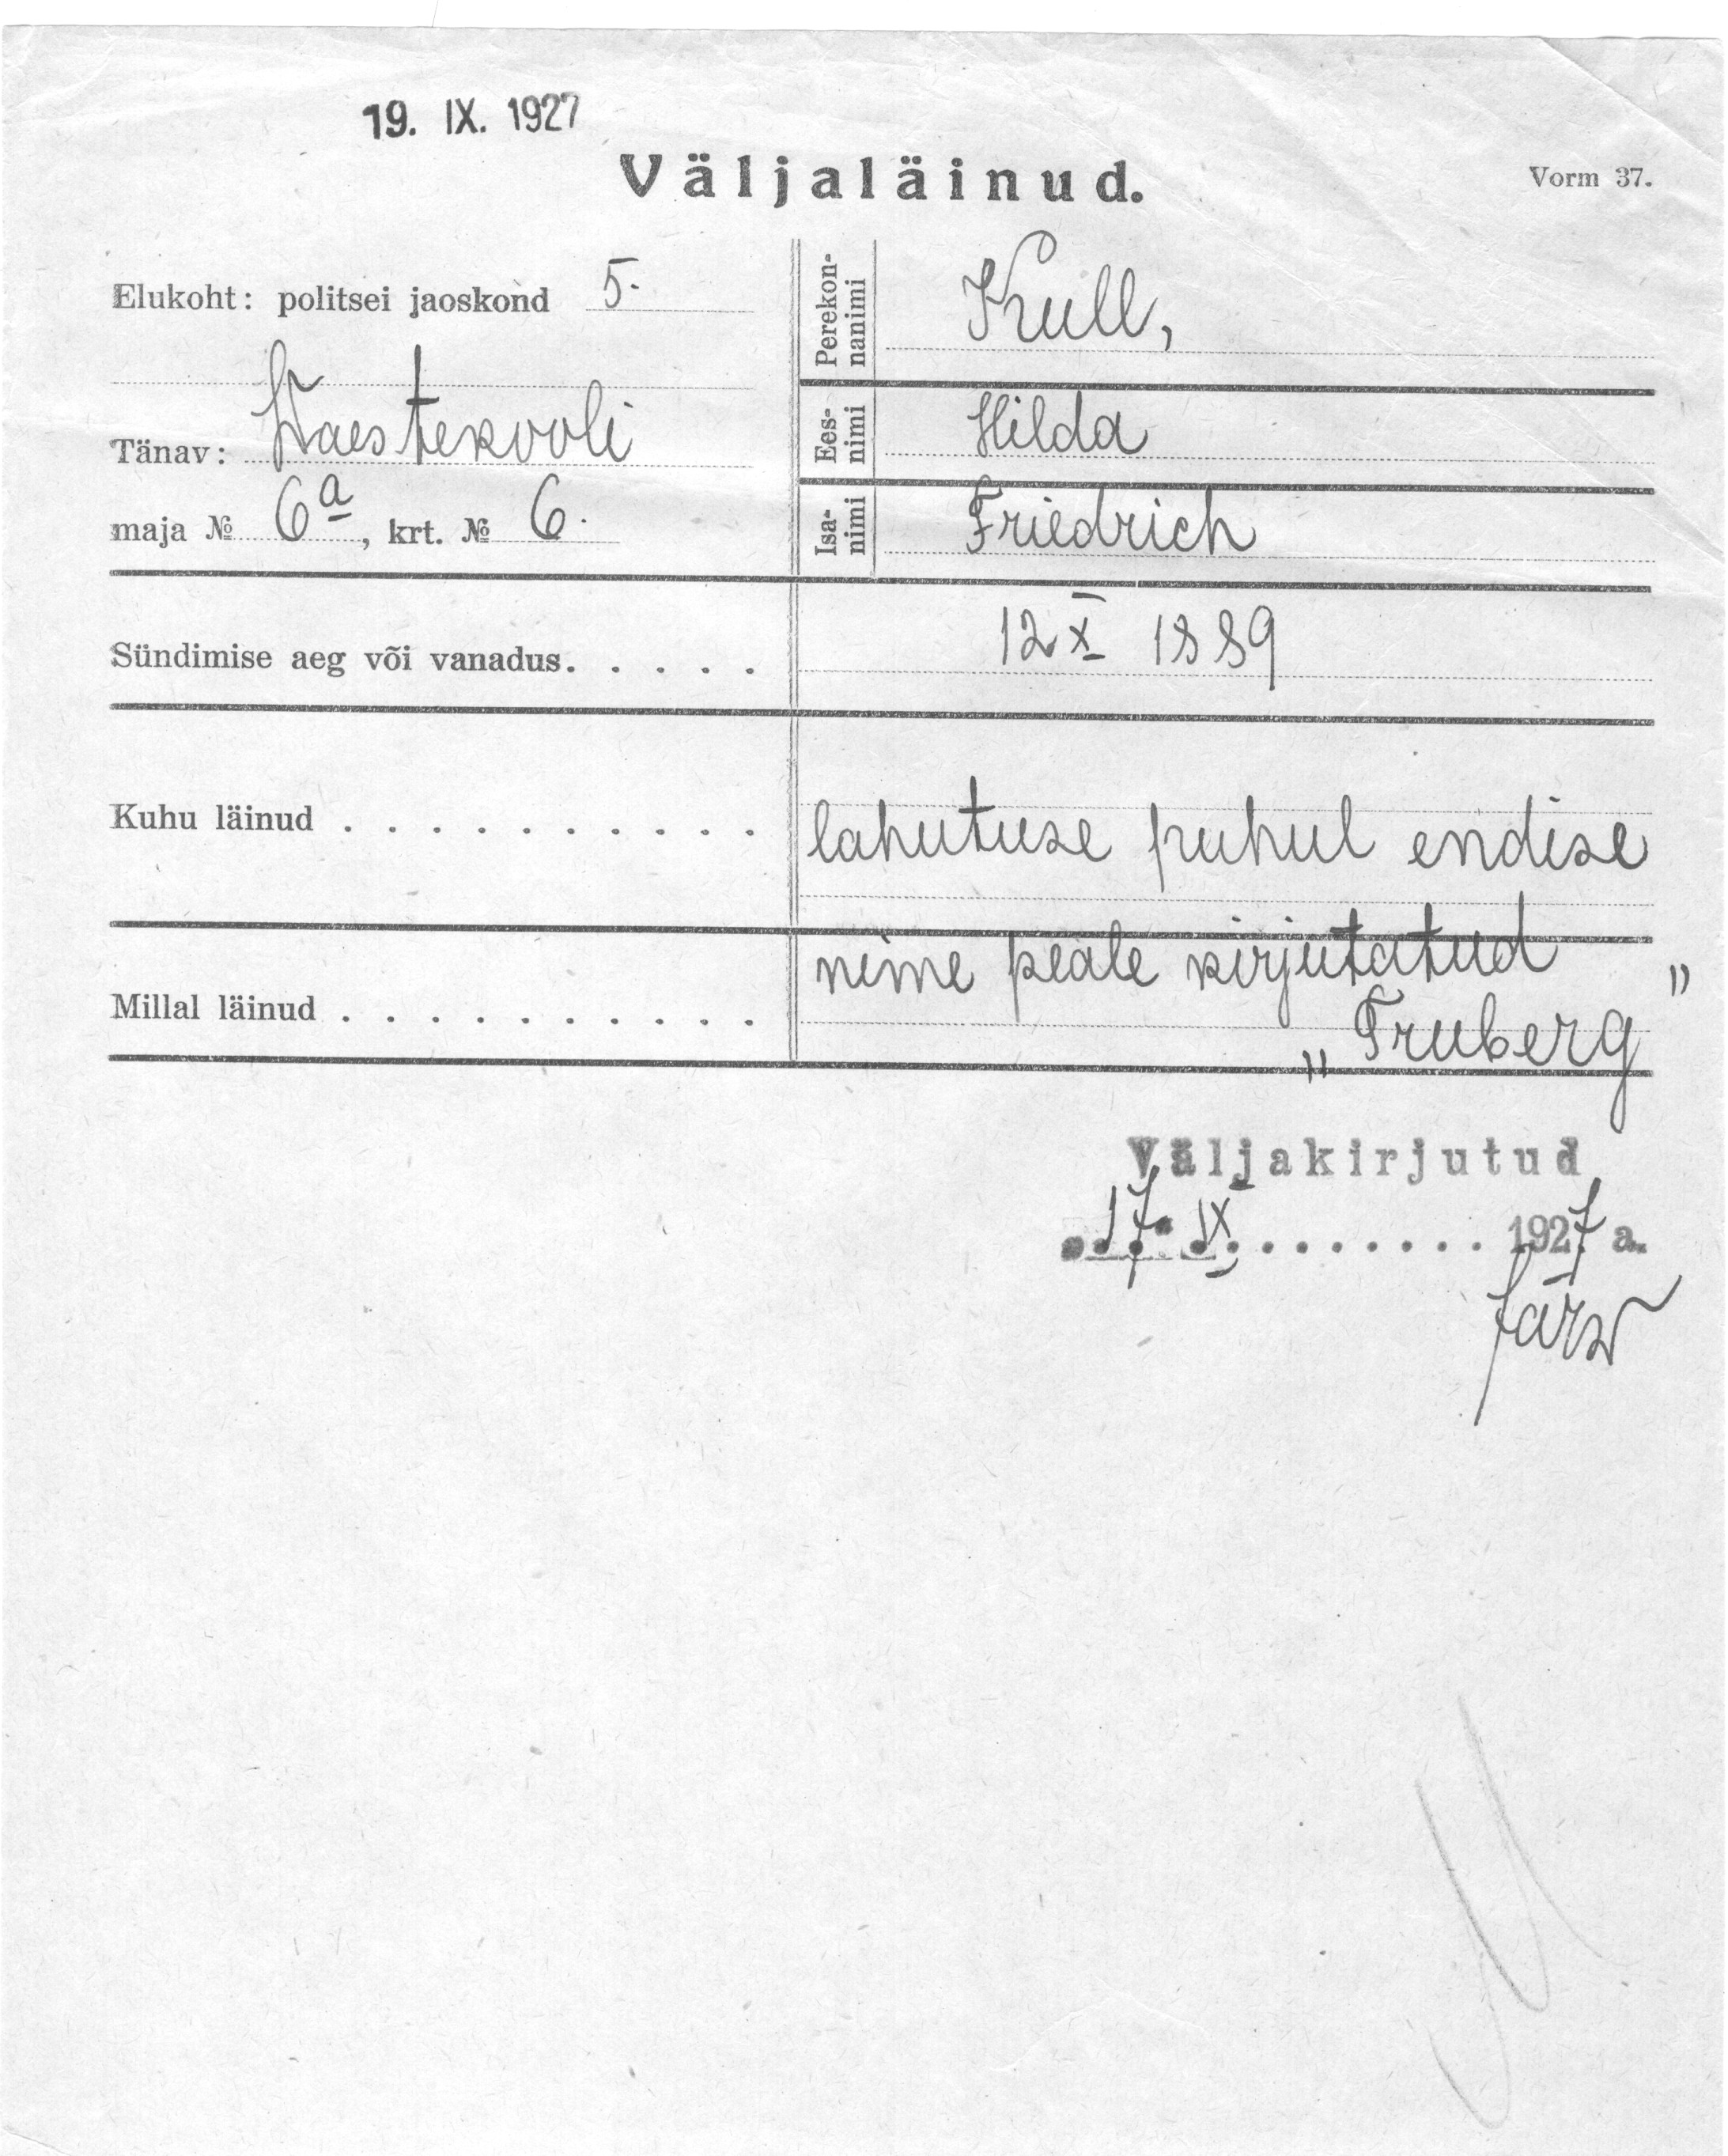 19. IX. 1927
Väljaläinud.
Vorm 37.
Elukoht: politsei jaoskond 5.
Tänav: Waestekooli
maja № 6a, krt. № 6.
Perekon-
nanimi
Krull,
Ees-
nimi
Hilda
Isa-
nimi
Friedrich
Sündimise aeg või vanadus. . . . . 12 X 1889
Kuhu läinud . . . . . . . . . . lahutuse puhul endise
nime peale kirjutatud
Millal läinud . . . . . . . . . . „Truberg"
Väljakirjutud
17. IX. . . . . . . . . 1927 a.